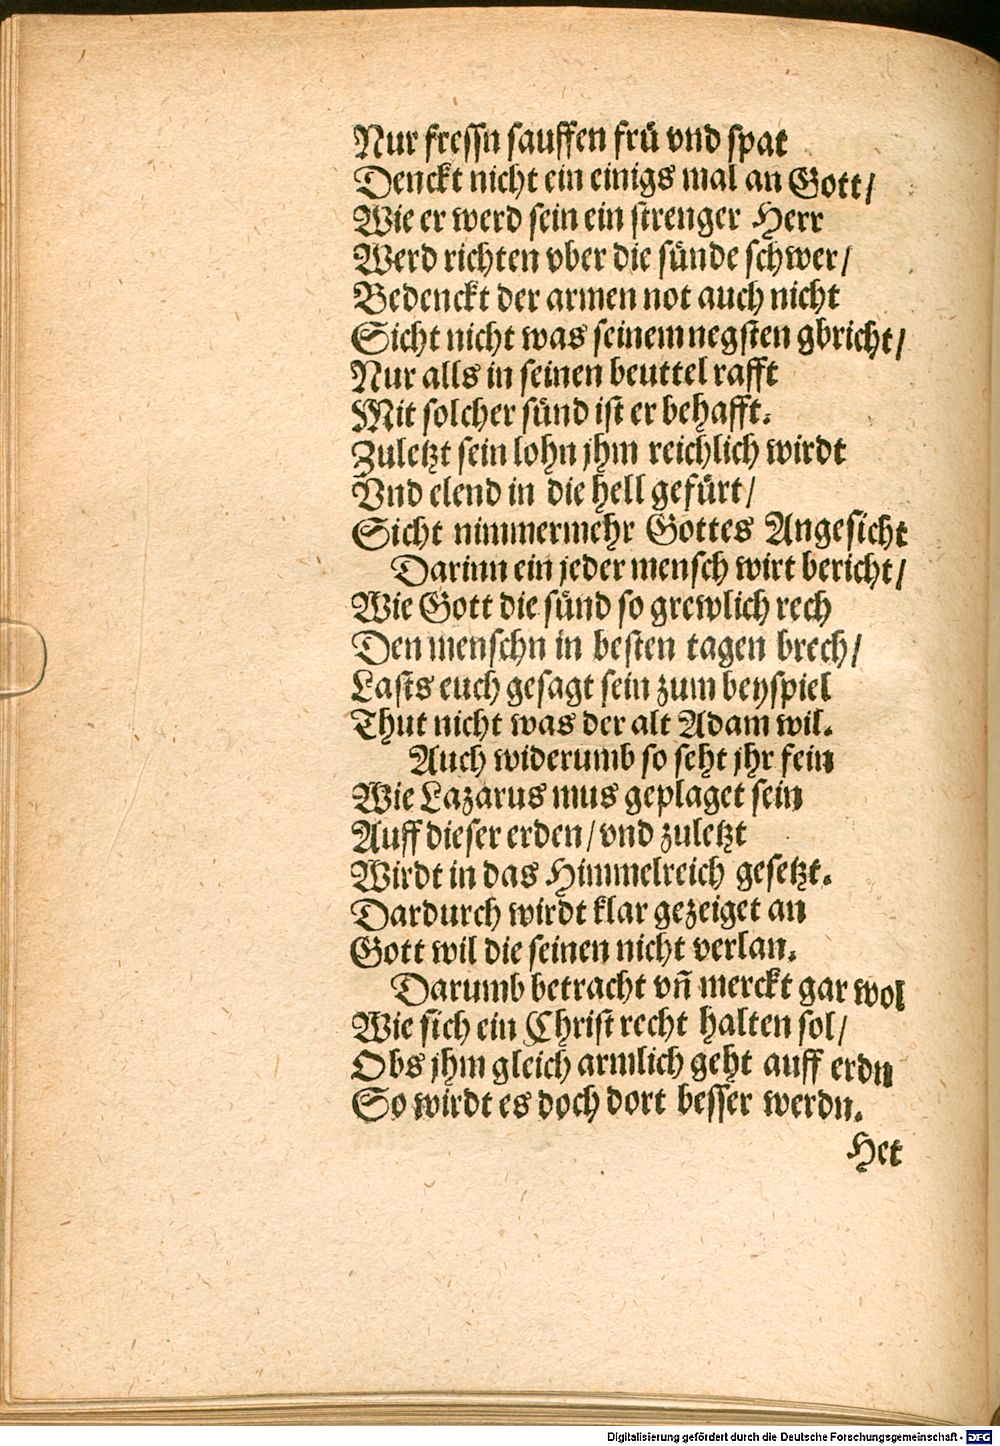 Nur fressn sauffen frü vnd spat
Denckt nicht ein einigs mal an Gott/
Wie er werd sein ein strenger Herr
Werd richten vber die sünde schwer/
Bedenckt der armen not auch nicht
Sicht nicht was seinem negsten gbricht/
Nur alls in seinen beuttel rafft
Mit solcher sünd ist er behafft.
Zuletzt sein lohn jhm reichlich wirdt
Vnd elend in die hell gefürt/
Sicht nimmermehr Gottes Angesicht
Darinn ein jeder mensch wirt bericht/
Wie Gott die sünd so grewlich rech
Den menschn in besten tagen brech/
Lasts euch gesagt sein zum beyspiel
Thut nicht was der alt Adam wil.
Auch widerumb so seht jhr fein
Wie Lazarus mus geplaget sein
Auff dieser erden/ vnd zuletzt
Wirdt in das Himmelreich gesetzt.
Dardurch wirdt klar gezeiget an
Gott wil die seinen nicht verlan.
Darumb betracht vñ merckt gar wol
Wie sich ein Christ recht halten sol/
Obs jhm gleich armlich geht auff erdn
So wirdt es doch dort besser werdn.
Het
Digitalisierung gefördert durch die Deutsche Forschungsgemeinschaft - DFG